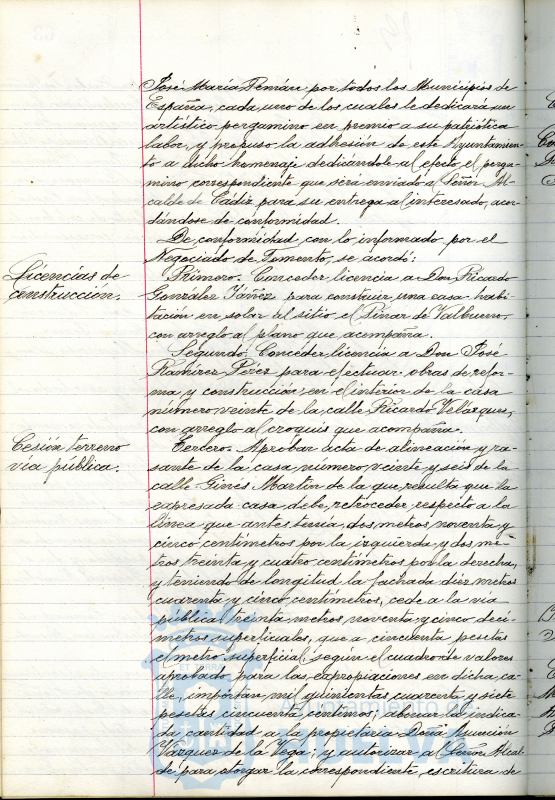 José María Pemán, por todos los Municipios de
España, cada uno de los cuales le dedicará un
artístico pergamino en premio a su patriótica
labor, y propuso la adhesión de este Ayuntamien-
to a dicho homenaje dedicándole al efecto el perga-
mino correspondiente que será enviado al Señor Al-
calde de Cádiz para su entrega al interesado, acor-
dándose de conformidad.
De conformidad con lo informado por el
Negociado de Fomento, se acordó:
Licencias de
construcción.
Primero. Conceder licencia a Don Ricardo
González Yáñez para construir una casa-habi-
tación en solar al sitio el Pinar de Valbueno,
con arreglo al plano que acompaña.
Segundo. Conceder licencia a Don José
Ramírez Pérez para efectuar obras de refor-
ma y construcción en el interior de la casa
número veinte de la calle Ricardo Velázquez,
con arreglo al croquis que acompaña.
Cesión terreno
vía pública.
Tercero. Aprobar acta de alineación y ra-
sante de la casa número veinte y seis de la
calle Ginés Martín de la que resulta que la
expresada casa debe retroceder respecto a la
línea que antes tenía, dos metros noventa y
cinco centímetros por la izquierda y dos me-
tros treinta y cuatro centímetros por la derecha,
y teniendo de longitud la fachada diez metros
cuarenta y cinco centímetros, cede a la vía
pública treinta metros noventa y cinco decí-
metros superficiales, que a cincuenta pesetas
el metro superficial, según el cuadro de valores
aprobado para las expropiaciones en dicha ca-
lle, importan mil quinientas cuarenta y siete
pesetas cincuenta céntimos; abonar la indica-
da cantidad a la propietaria Doña Asunción
Vázquez de la Vega; y autorizar al Señor Alcal-
de para otorgar la correspondiente escritura de
Ayuntamiento de
HUELVA